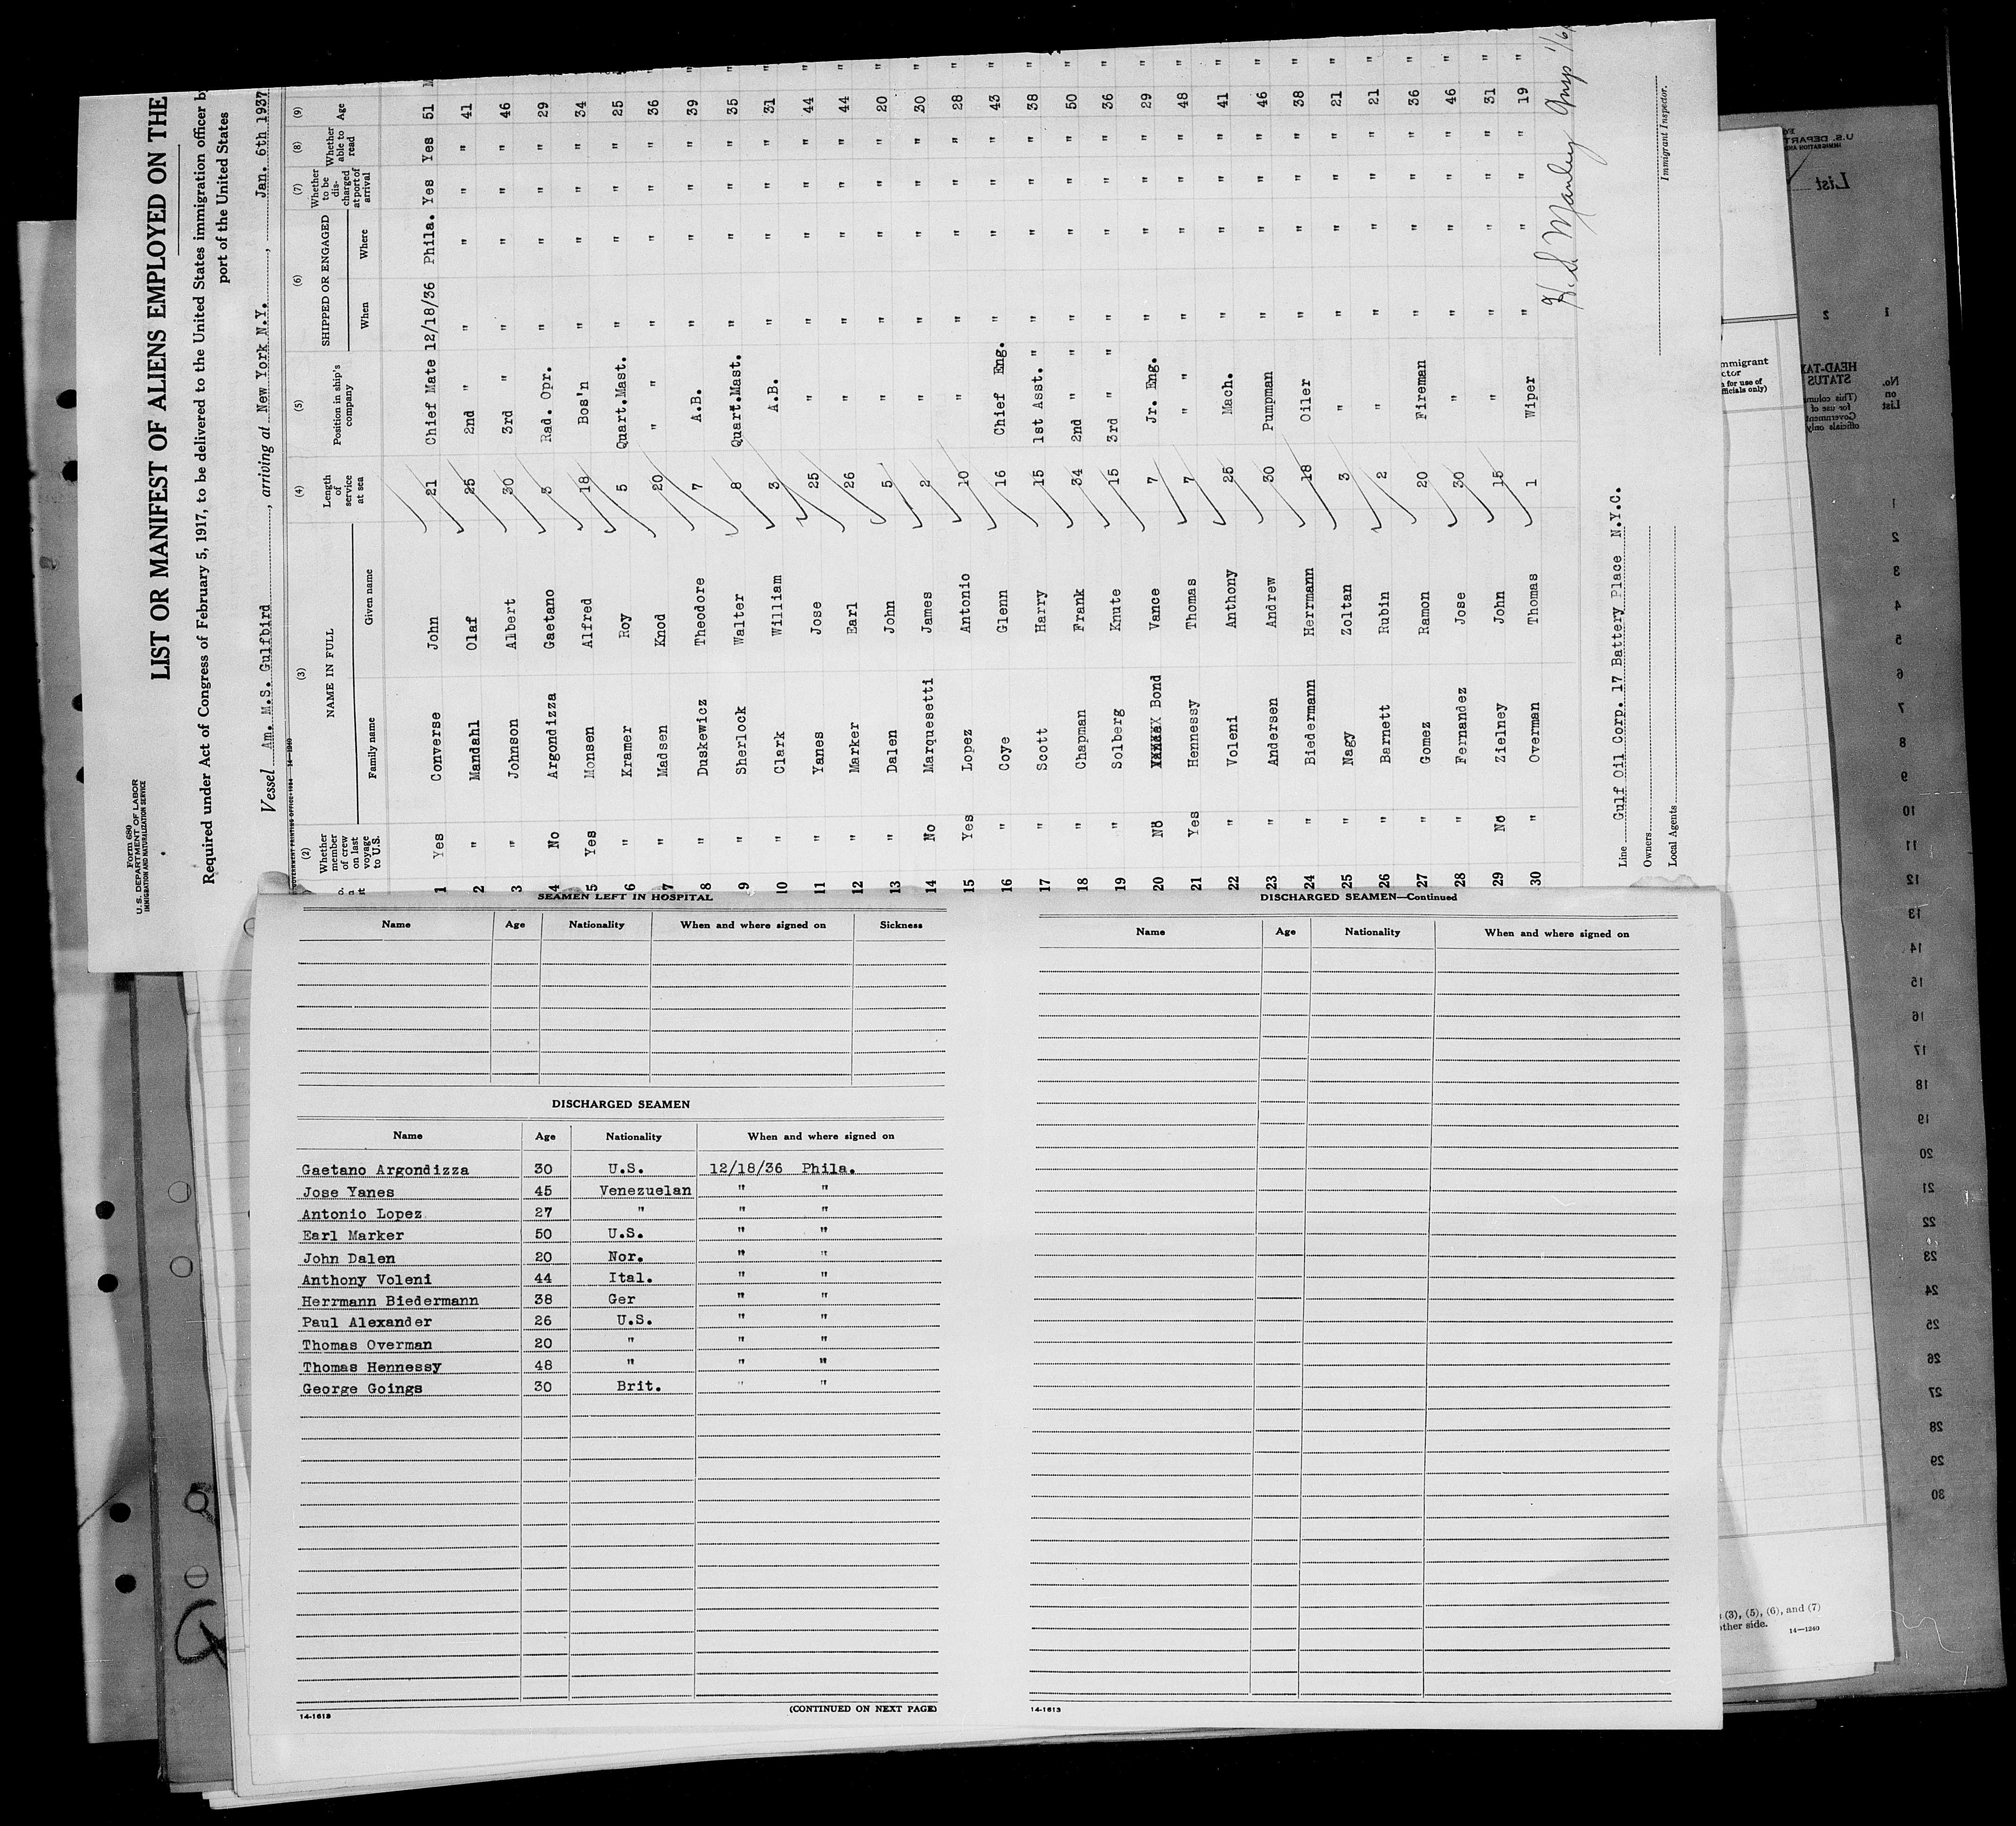 Form 680
U. S. DEPARTMENT OF LABOR
IMMIGRATION AND NATURALIZATION SERVICE
LIST OR MANIFEST OF ALIENS EMPLOYED ON THE
Required under Act of Congress of February 5, 1917, to be delivered to the United States immigration officer by
port of the United States
Vessel Am. M.S. Gulfbird, arriving at New York N.Y., Jan. 6th 1937
(2) (3) (4) (5) (6) (7) (8) (9)
Whether member of crew on last voyage to U.S. NAME IN FULL Family name Given name Length of service at sea Position in ship's company SHIPPED OR ENGAGED When Where Whether to be discharged at port of arrival Whether able to read Age
1 Yes Converse John 21 Chief Mate 12/18/36 Phila. Yes Yes 51
2 " Mandahl Olaf 25 2nd " " " " " 41 "
3 " Johnson Albert 30 3rd " " " " " 46 "
4 No Argondizza Gaetano 3 Rad. Opr. " " " " 29 "
5 Yes Monsen Alfred 18 Bos'n " " " " 34 "
6 " Kramer Roy 5 Quart.Mast. " " " " 25 "
7 " Madsen Knod 20 " " " " " " 36 "
8 " Duskewicz Theodore 7 A.B. " " " " 39 "
9 " Sherlock Walter 8 Quart.Mast. " " " " 35 "
10 " Clark William 3 A.B. " " " " 31 "
11 " Yanes Jose 25 " " " " " 44 "
12 " Marker Earl 26 " " " " " 44 "
13 " Dalen John 5 " " " " " 20 "
14 No Marquesetti James 2 " " " " " 30 "
15 Yes Lopez Antonio 10 " " " " " 28 "
16 " Coye Glenn 16 Chief Eng. " " " " 43 "
17 " Scott Harry 15 1st Asst. " " " " 38 "
18 " Chapman Frank 34 2nd " " " " " 50 "
19 " Solberg Knute 15 3rd " " " " " 36 "
20 No Bond Vance 7 Jr. Eng. " " " " 29 "
21 Yes Hennessy Thomas 7 " " " " " " 48 "
22 " Voleni Anthony 25 Mach. " " " " 41 "
23 " Andersen Andrew 30 Pumpman " " " " 46 "
24 " Biedermann Herrmann 18 Oiler " " " " 38 "
25 " Nagy Zoltan 3 " " " " " 21 "
26 " Barnett Rubin 2 " " " " " 21 "
27 " Gomez Ramon 20 Fireman " " " " 36 "
28 " Fernandez Jose 30 " " " " " 46 "
29 No Zielney John 15 " " " " " 31 "
30 " Overman Thomas 1 Wiper " " " " 19 "
H. S. Manley Insp
Line Gulf Oil Corp. 17 Battery Place N.Y.C.
Owners
Local Agents
Immigrant Inspector.
SEAMEN LEFT IN HOSPITAL
Name Age Nationality When and where signed on Sickness
DISCHARGED SEAMEN
Name Age Nationality When and where signed on
Gaetano Argondizza 30 U.S. 12/18/36 Phila.
Jose Yanes 45 Venezuelan " "
Antonio Lopez 27 " " "
Earl Marker 50 U.S. " "
John Dalen 20 Nor. " "
Anthony Voleni 44 Ital. " "
Herrmann Biedermann 38 Ger " "
Paul Alexander 26 U.S. " "
Thomas Overman 20 " " "
Thomas Hennessy 48 " " "
George Goings 30 Brit. " "
(CONTINUED ON NEXT PAGE)
14-1613
DISCHARGED SEAMEN—Continued
Name Age Nationality When and where signed on
14-1613
(3), (5), (6), and (7)
other side.
14—1240
List
HEAD-TAX
STATUS
(This column
for use of
Government
officials only)
No.
on
List
1
2
3
4
5
6
7
8
9
10
11
12
13
14
15
16
17
18
19
20
21
22
23
24
25
26
27
28
29
30